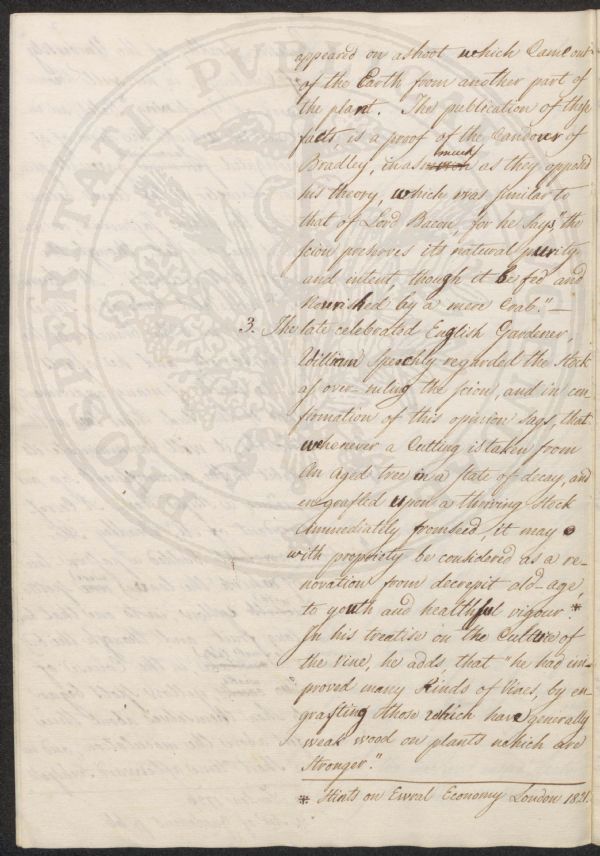 appeared on a shoot which Came out
of the Earth from another part of
the plant. This publication of these
facts, is a proof of the Candour of
Bradley, in as much as they opposed
his theory, which was similar to
that of Lord Bacon, for he says, "the
scion preserves its natural purity
and intent, though it be fed and
Nourished by a mere Crab." —
3. The late celebrated English Gardener,
William Speechly regarded the Stock
as over-ruling the scion, and in con-
firmation of this opinion says, that
whenever a Cutting is taken from
an aged tree in a state of decay, and
engrafted upon a thriving Stock
immediately from seed, it may
with propriety be considered as a re-
novation from decrepit old-age,
to youth and healthful vigour.*
In his treatise on the Culture of
the Vine, he adds, that "he had im-
proved many Kinds of Vines, by en-
grafting those which have generally
weak wood on plants which are
Stronger."
* Hints on Rural Economy London 1821.
PROSPERITATI PUBL